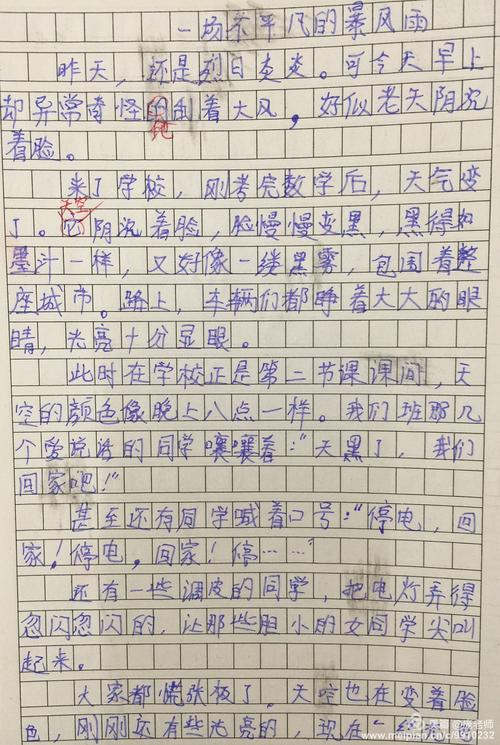 一场不平凡的暴风雨
昨天，还是烈日炎炎。可今天早上
却异常奇怪的刮着大风，好似老天阴沉
地
着脸。
来了学校，刚考完数学后，天气变
天空
了。它阴沉着脸，脸慢慢变黑，黑得如
墨汁一样，又好像一缕黑雾，包围着整
座城市。路上，车辆们都睁着大大的眼
睛，光亮十分显眼。
此时在学校正是第二节课课间，天
空的颜色像晚上八点一样。我们班那几
个爱说话的同学嚷嚷着：“天黑了，我们
回家吧！”
甚至还有同学喊着口号：“停电，回
家！停电，回家！停……”
还有一些调皮的同学，把电灯弄得
忽闪忽闪的，让那些胆小的女同学尖叫
起来。
大家都慌张极了。天空也在变着脸
色，刚刚还有些光亮的，现在“
美篇
www.meipian.cn/c/9910232